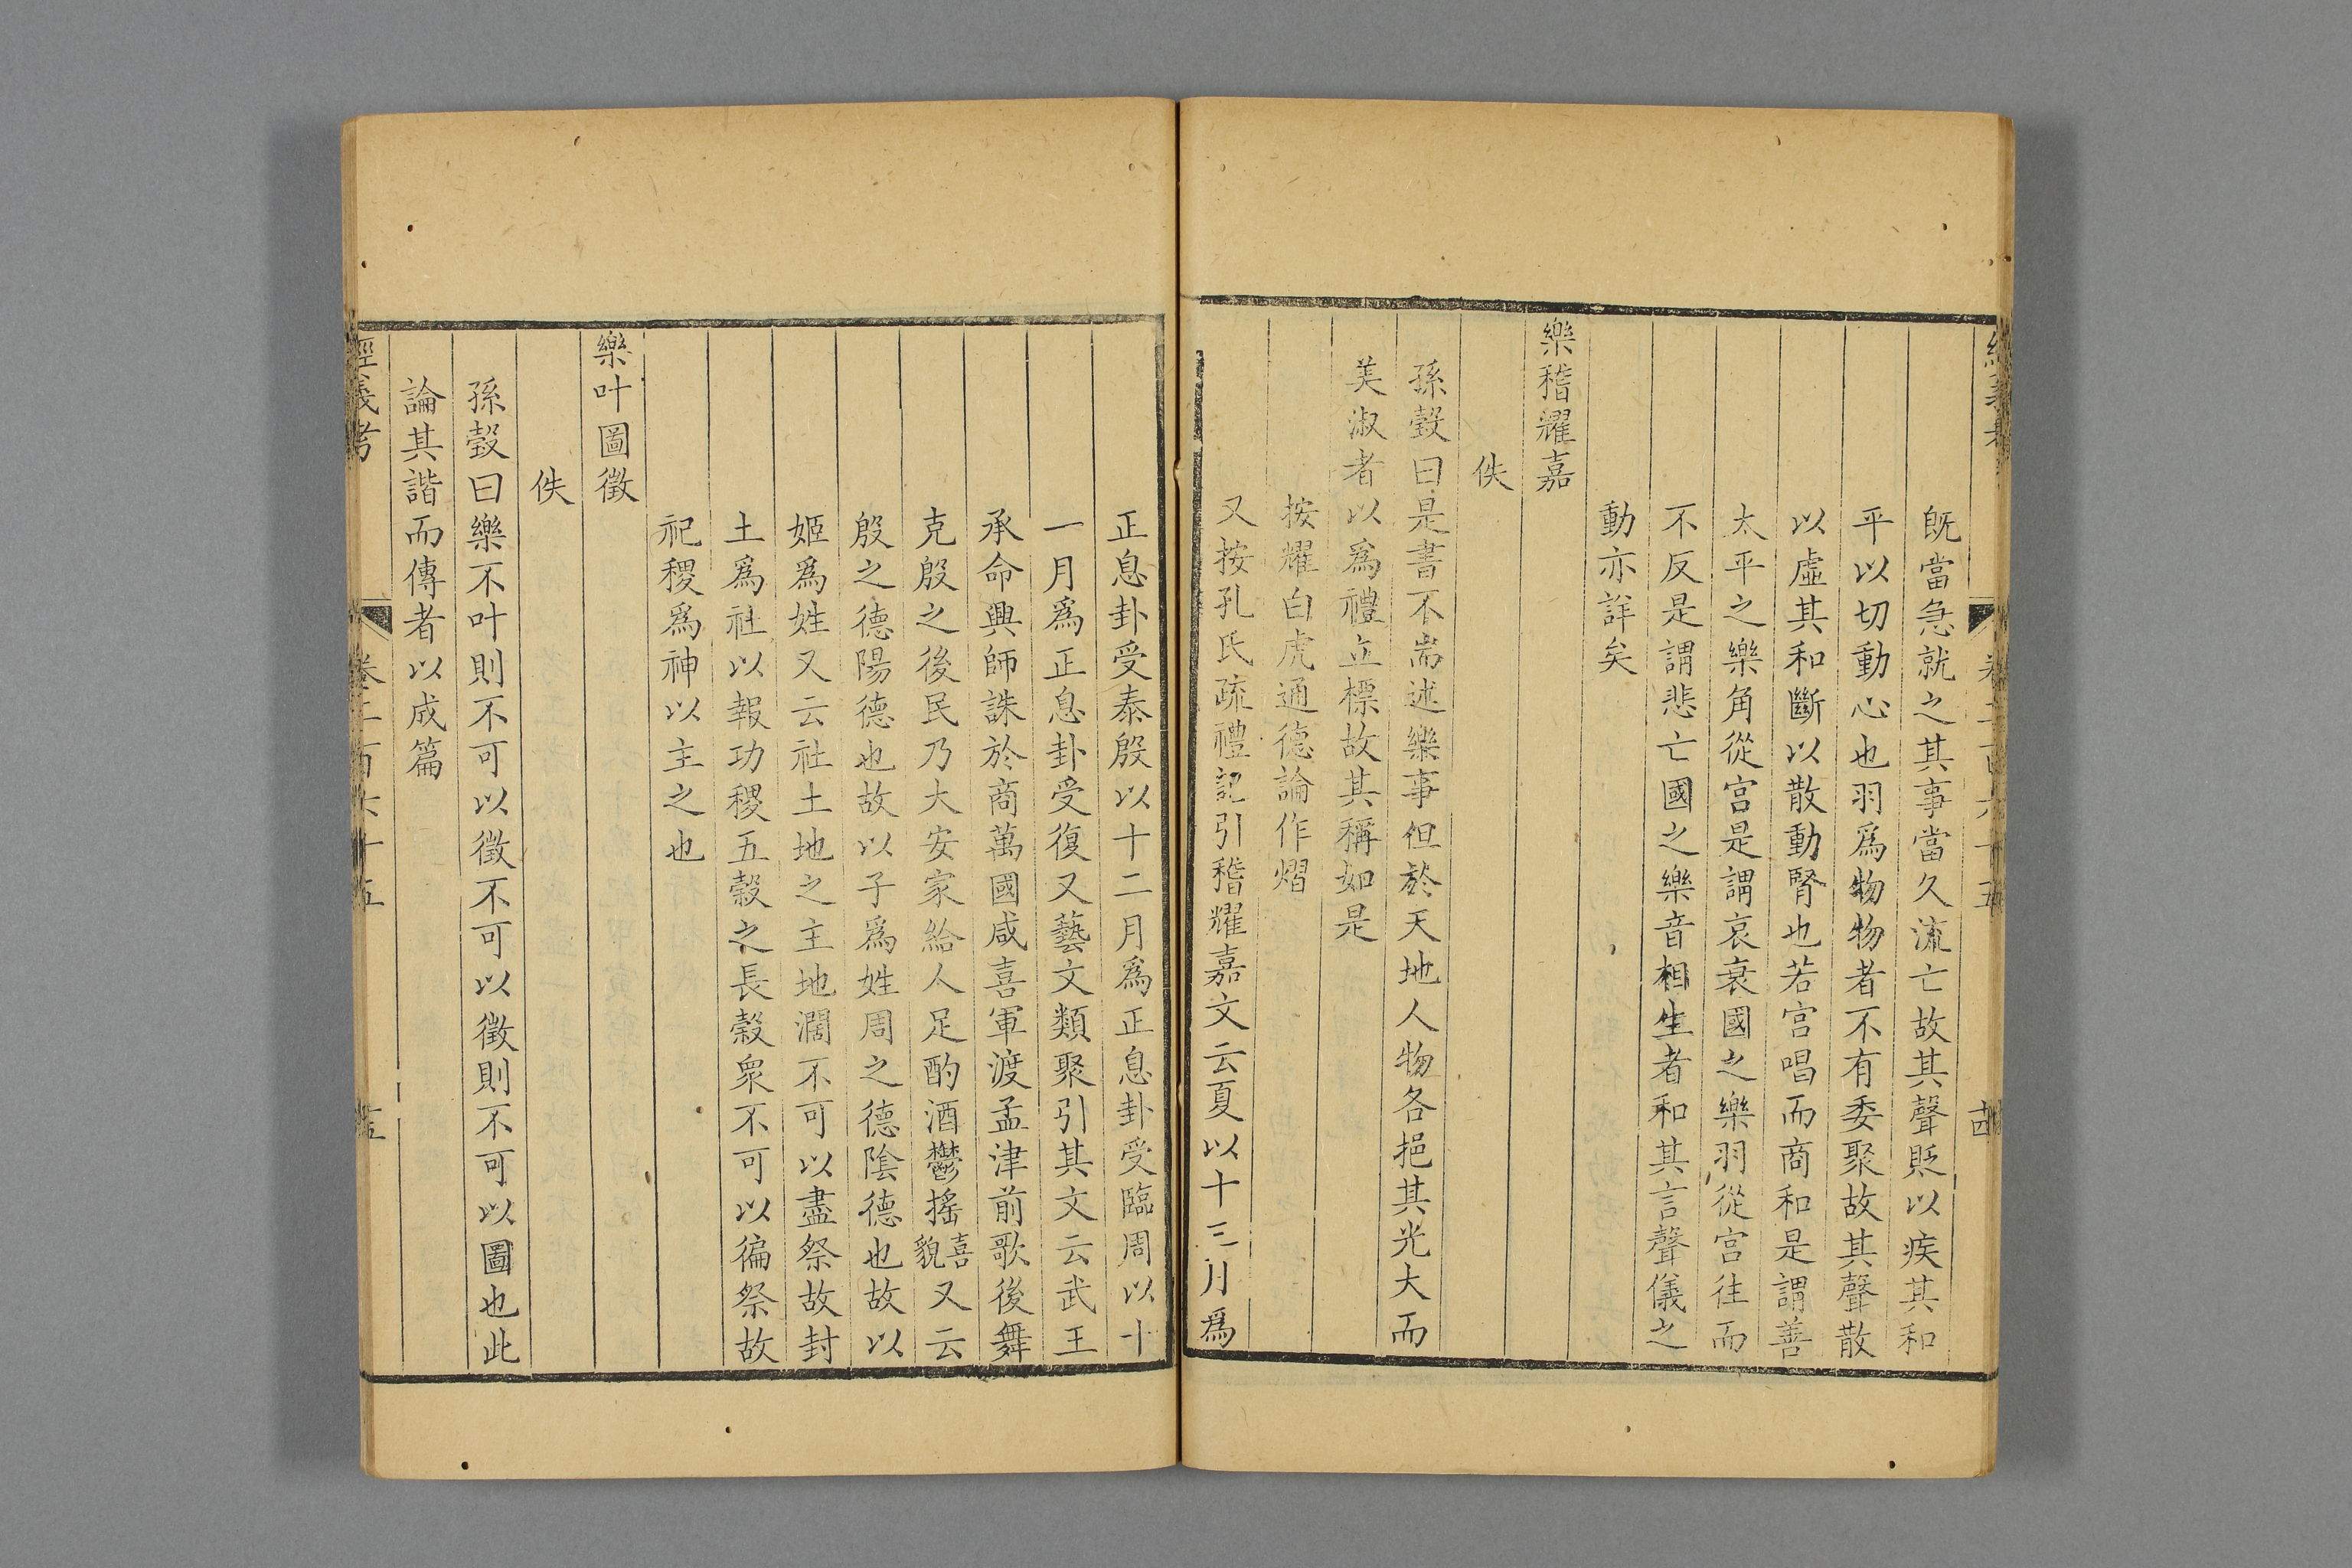 既當急就之其事當久流亡故其聲貶以疾其和
平以切動心也羽爲物物者不有委聚故其聲散
以虛其和斷以散動腎也若宫唱而商和是謂善
太平之樂角從宫是謂哀衰國之樂羽從宫往而
不反是謂悲亡國之樂音相生者和其言聲儀之
動亦詳矣
樂稽耀嘉
佚
孫瑴曰是書不耑述樂事但於天地人物各挹其光大而
美淑者以爲禮立標故其稱如是
按耀白虎通德論作熠
又按孔氏疏禮記引稽耀嘉文云夏以十三月爲
正息卦受泰殷以十二月爲正息卦受臨周以十
一月爲正息卦受復又藝文類聚引其文云武王
承命興師誅於商萬國咸喜軍渡孟津前歌後舞
克殷之後民乃大安家給人足酌酒鬱搖喜貌又云
殷之德陽德也故以子爲姓周之德陰德也故以
姬爲姓又云社土地之主地濶不可以盡祭故封
土爲社以報功稷五榖之長榖衆不可以徧祭故
祀稷爲神以主之也
樂叶圖徵
佚
孫瑴曰樂不叶則不可以徵不可以徵則不可以圖也此
論其諧而傳者以成篇
經義考 卷二百六十五